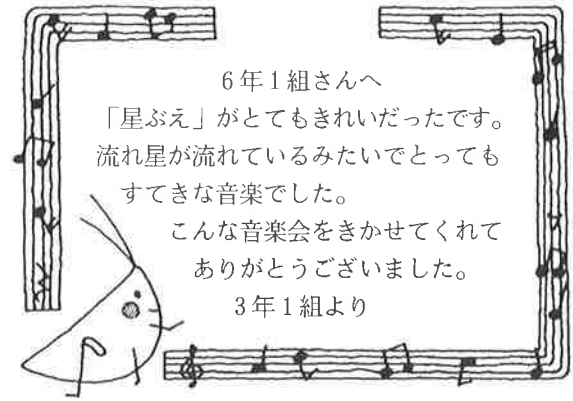 6年1組さんへ
「星ぶえ」がとてもきれいだったです。
流れ星が流れているみたいでとっても
すてきな音楽でした。
こんな音楽会をきかせてくれて
ありがとうございました。
3年1組より